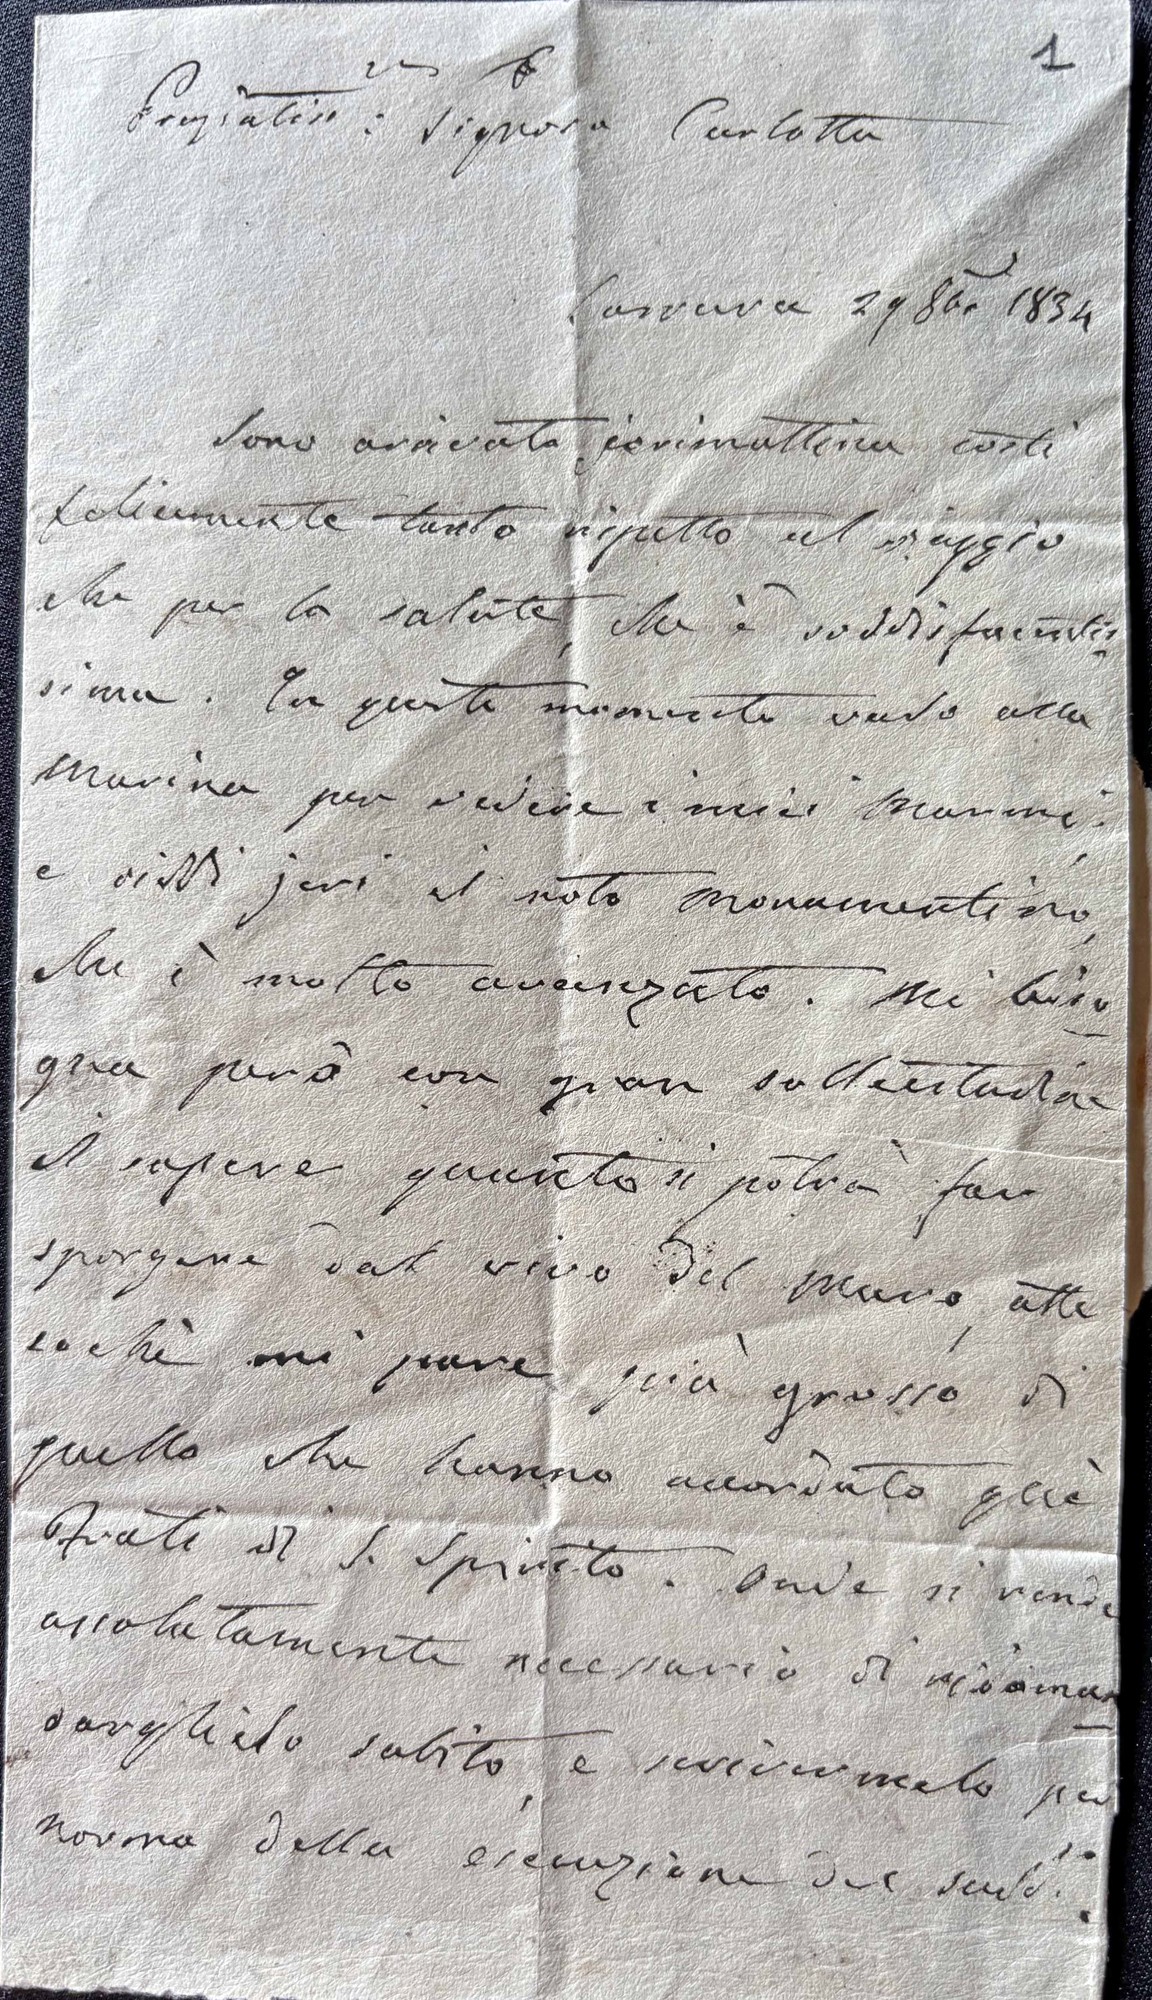 1
Pregiatiss: Signora Carlotta
Carrara 29 8bre 1834
Sono arrivato jerimattina costì
felicemente tanto rispetto al viaggio
che per la salute, che è soddisfacentis
sima. In questo momento vado alla
Marina per vedere i miei Marmi.
e viddi jeri il noto monumentino,
che è molto avanzato. Mi biso
gna però con gran sollecitudine
il sapere quanto si potrà far
sporgere dal vivo del Muro, atte
sochè mi pare più grosso di
quello che hanno accordato glie
Frati di S. Spirito. Onde si rende
assolutamente necessario di
darglielo subito, e scrivermelo per
norma della esecuzione del sudd:o